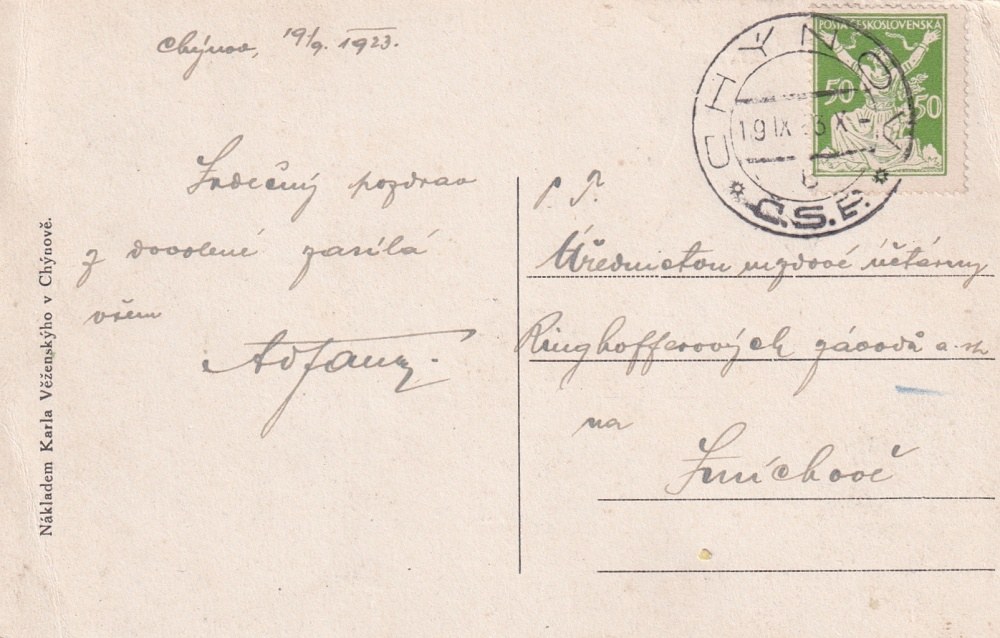 Chýnov, 19/9. 1923.
Srdečný pozdrav
z dovolené zasílá
všem
P. T.
Úřednictvu mzdové účtárny
Ringhofferových závodů a. sp.
na
Smíchově
POŠTA ČESKOSLOVENSKA
50 50
CHÝNOV
19 IX 23 X
Č.S.P.
Nákladem Karla Věženskýho v Chýnově.